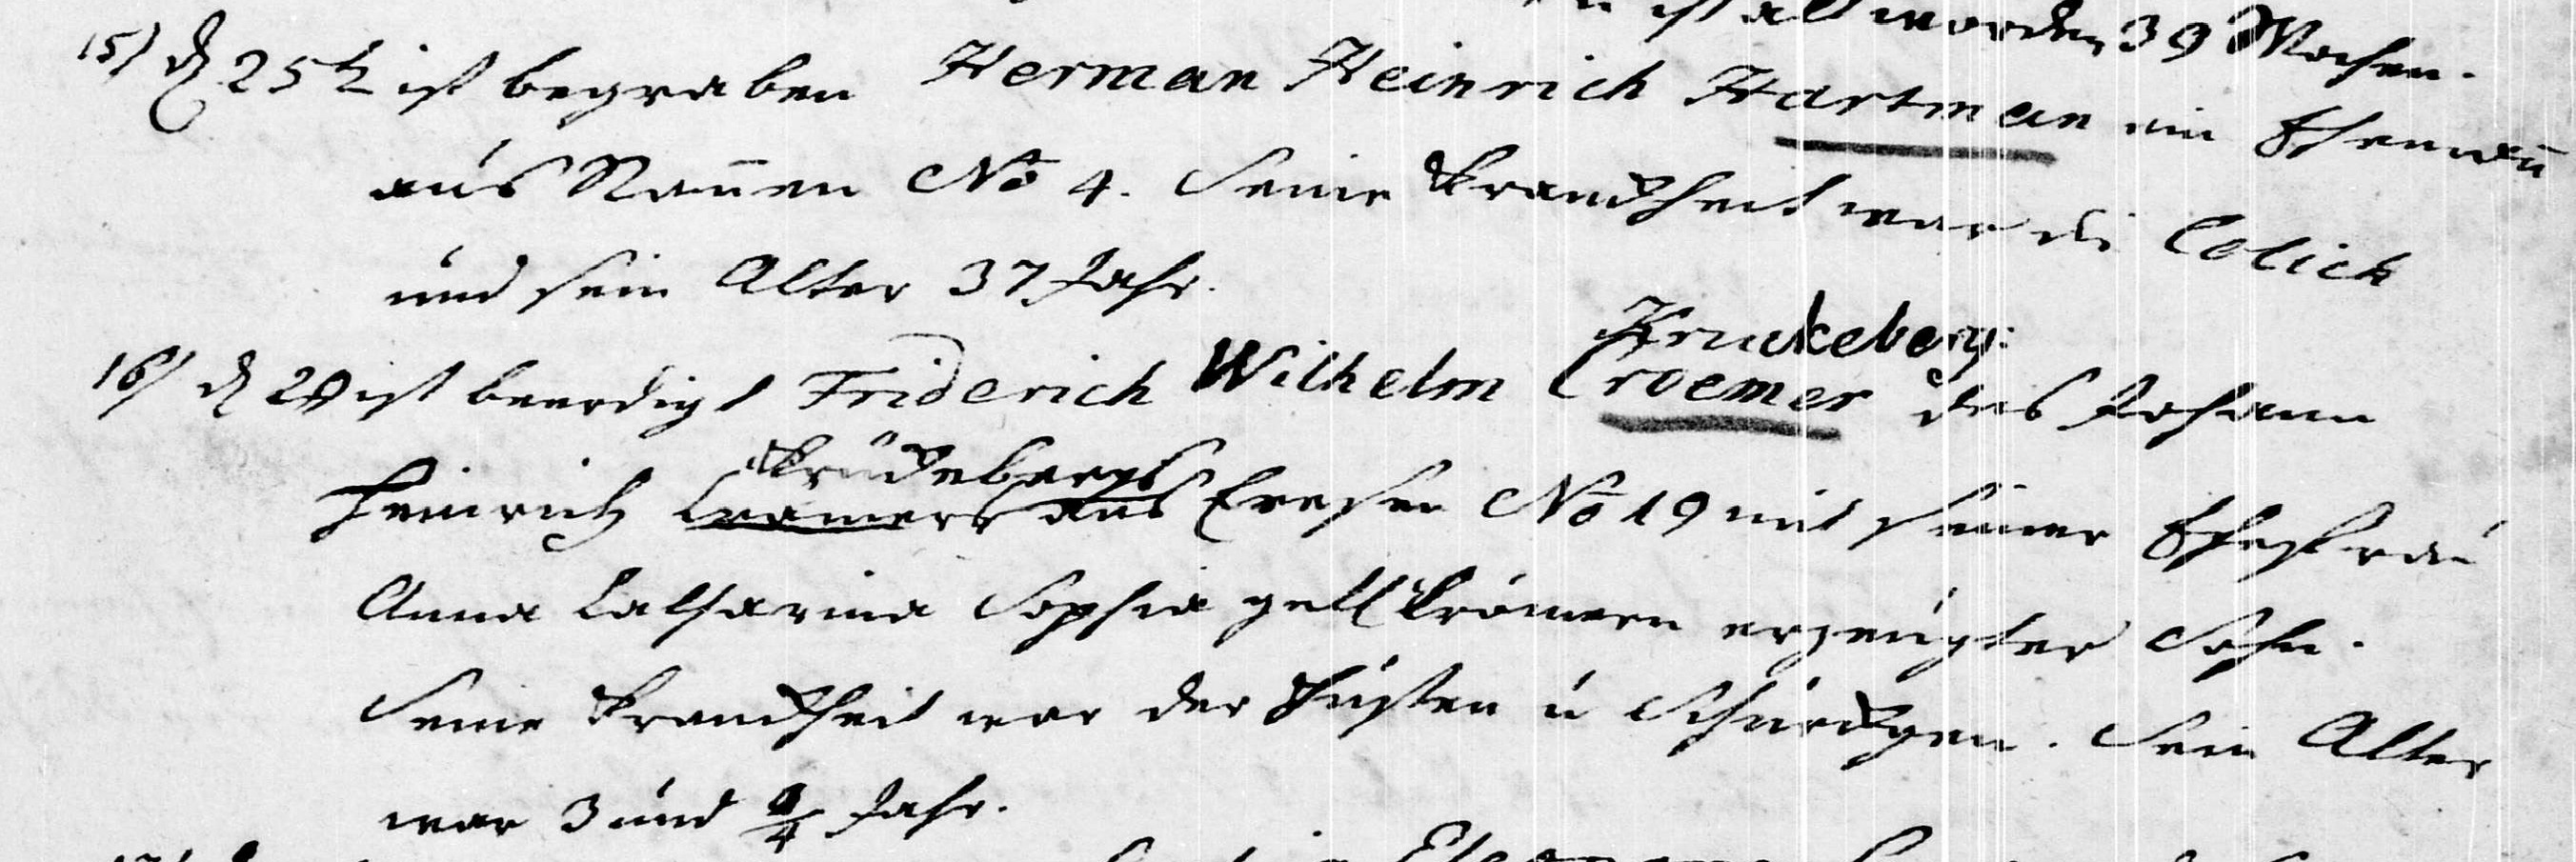 ist alt worden 39 Wochen.
15) d 25t ist begraben Herman Heinrich Hartman ein Ehemañ
aus No 4. Seine Kranckheit war die Colick
und sein Alter 37 Jahr.
Kruckeberg
16) d ist beerdigt Friderich Wilhelm Croemer des Johann
Krückebergs
Heinrich Cramers aus Exersen No 19 mit seiner Ehefrau
Anna Catharina Sophia geb Krömern erzeugter Sohn.
Seine Kranckheit war der Husten u Schürchgen. Sein Alter
war 3 und 3/4 Jahr.